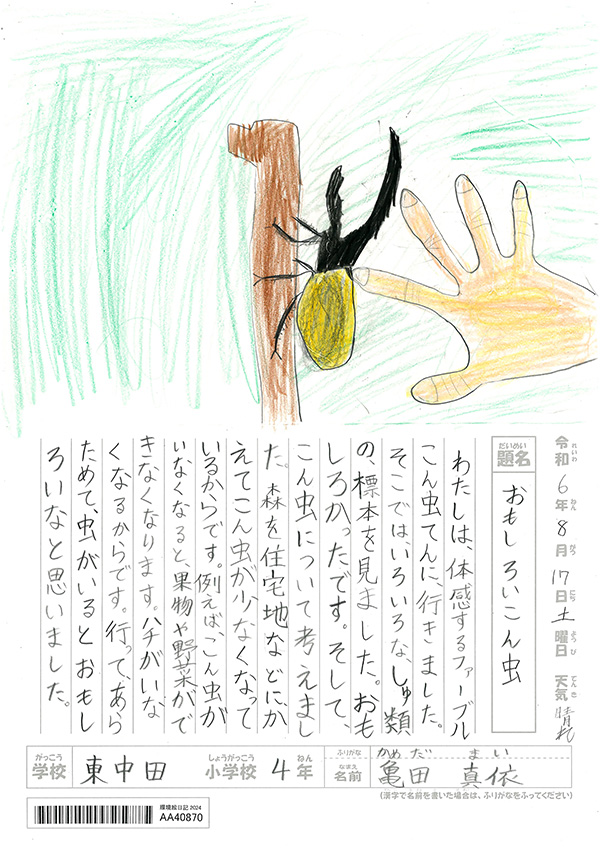 令和6年8月17日土曜日 天気 晴れ
れいわ ねん がつ にち ようび てんき
だいめい
題名 おもしろいこん虫
わたしは、体感するファーブル
こん虫てんに、行きました。
そこでは、いろいろな、しゅ類
の、標本を見ました。おも
しろかったです。そして、
こん虫について考えまし
た。森を住宅地などにか
えてこん虫が少なくなって
いるからです。例えば、こん虫が
いなくなると、果物や野菜がで
きなくなります。ハチがいな
くなるからです。行って、あら
ためて、虫がいるとおもし
ろいなと思いました。
がっこう しょうがっこう ねん
学校 東中田 小学校 4年
ふりがな かめだ まい
なまえ
名前 亀田 真依
(漢字で名前を書いた場合は、ふりがなをふってください)
環境絵日記 2024
AA40870